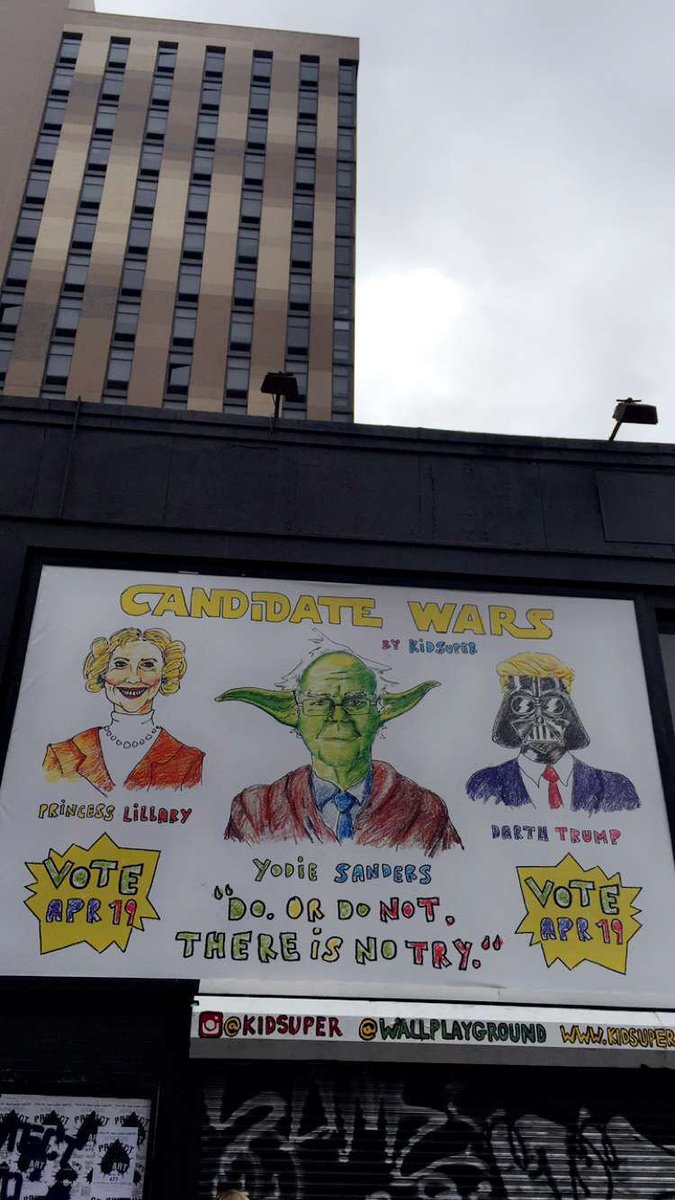 CANDIDATE WARS
BY KIDSUPER
PRINCESS LILLARY
DARTH TRUMP
YODIE SANDERS
VOTE
APR 19
"DO. OR DO NOT.
THERE IS NO TRY."
VOTE
APR 19
@KIDSUPER @WALLPLAYGROUND WWW.KIDSUPER